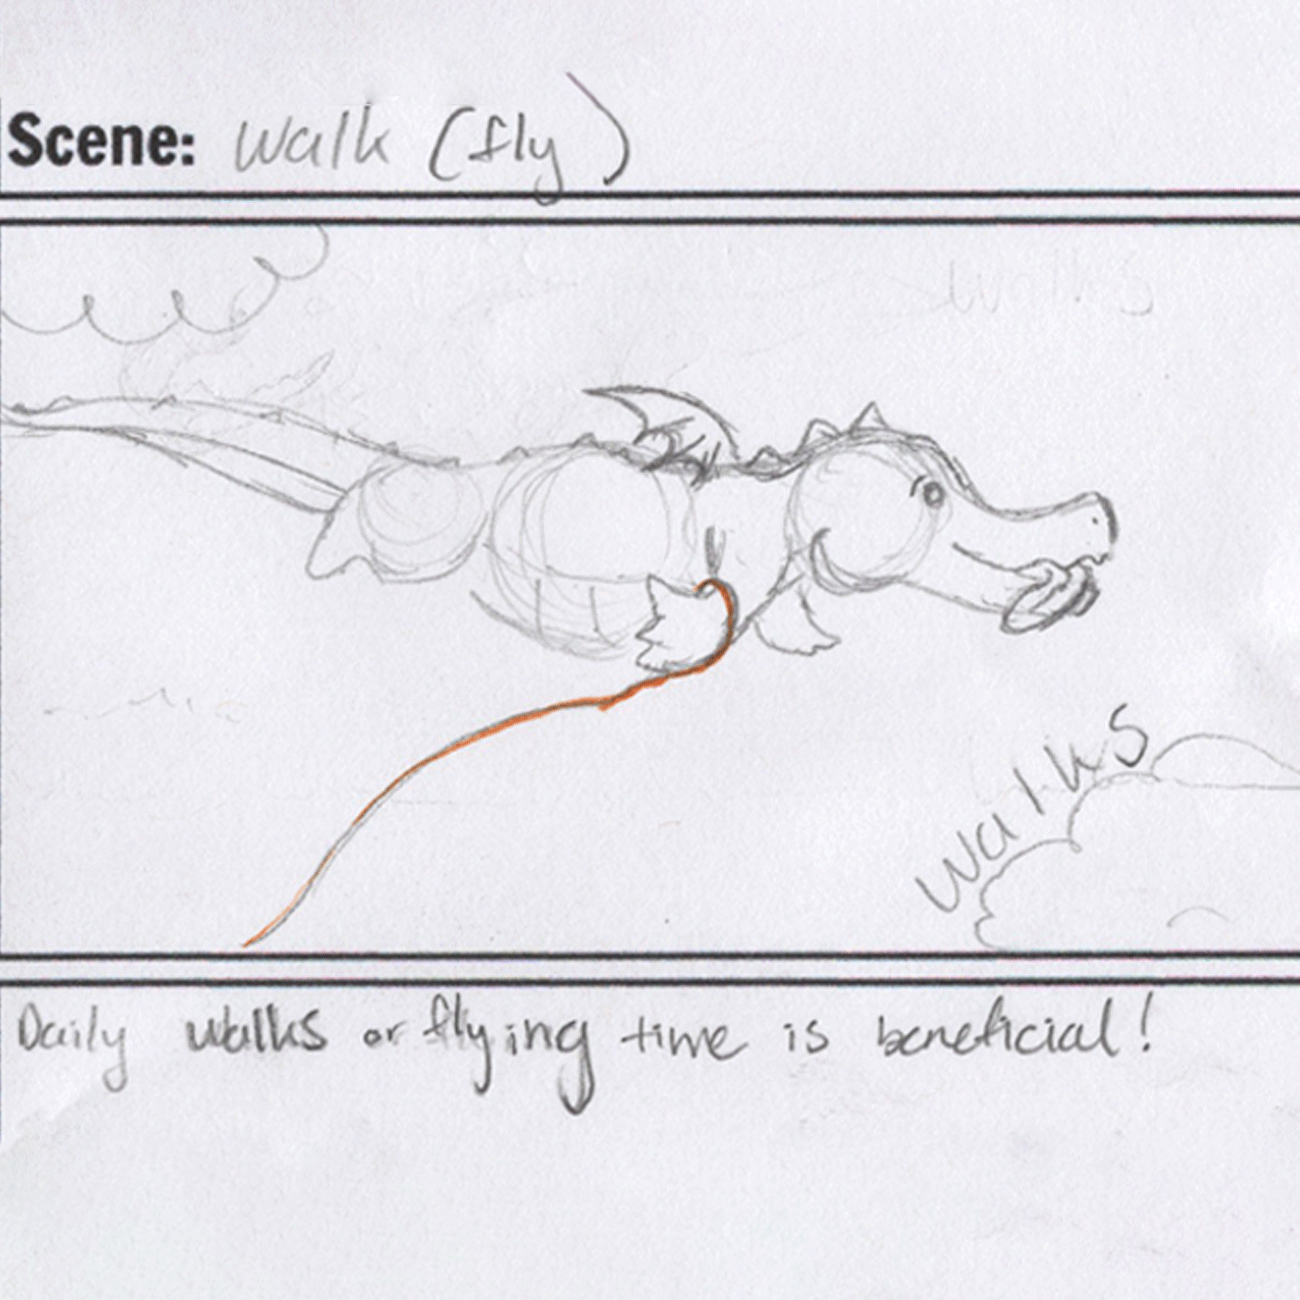 Scene: Walk (fly)
Walks
Walks
Daily walks or flying time is beneficial!